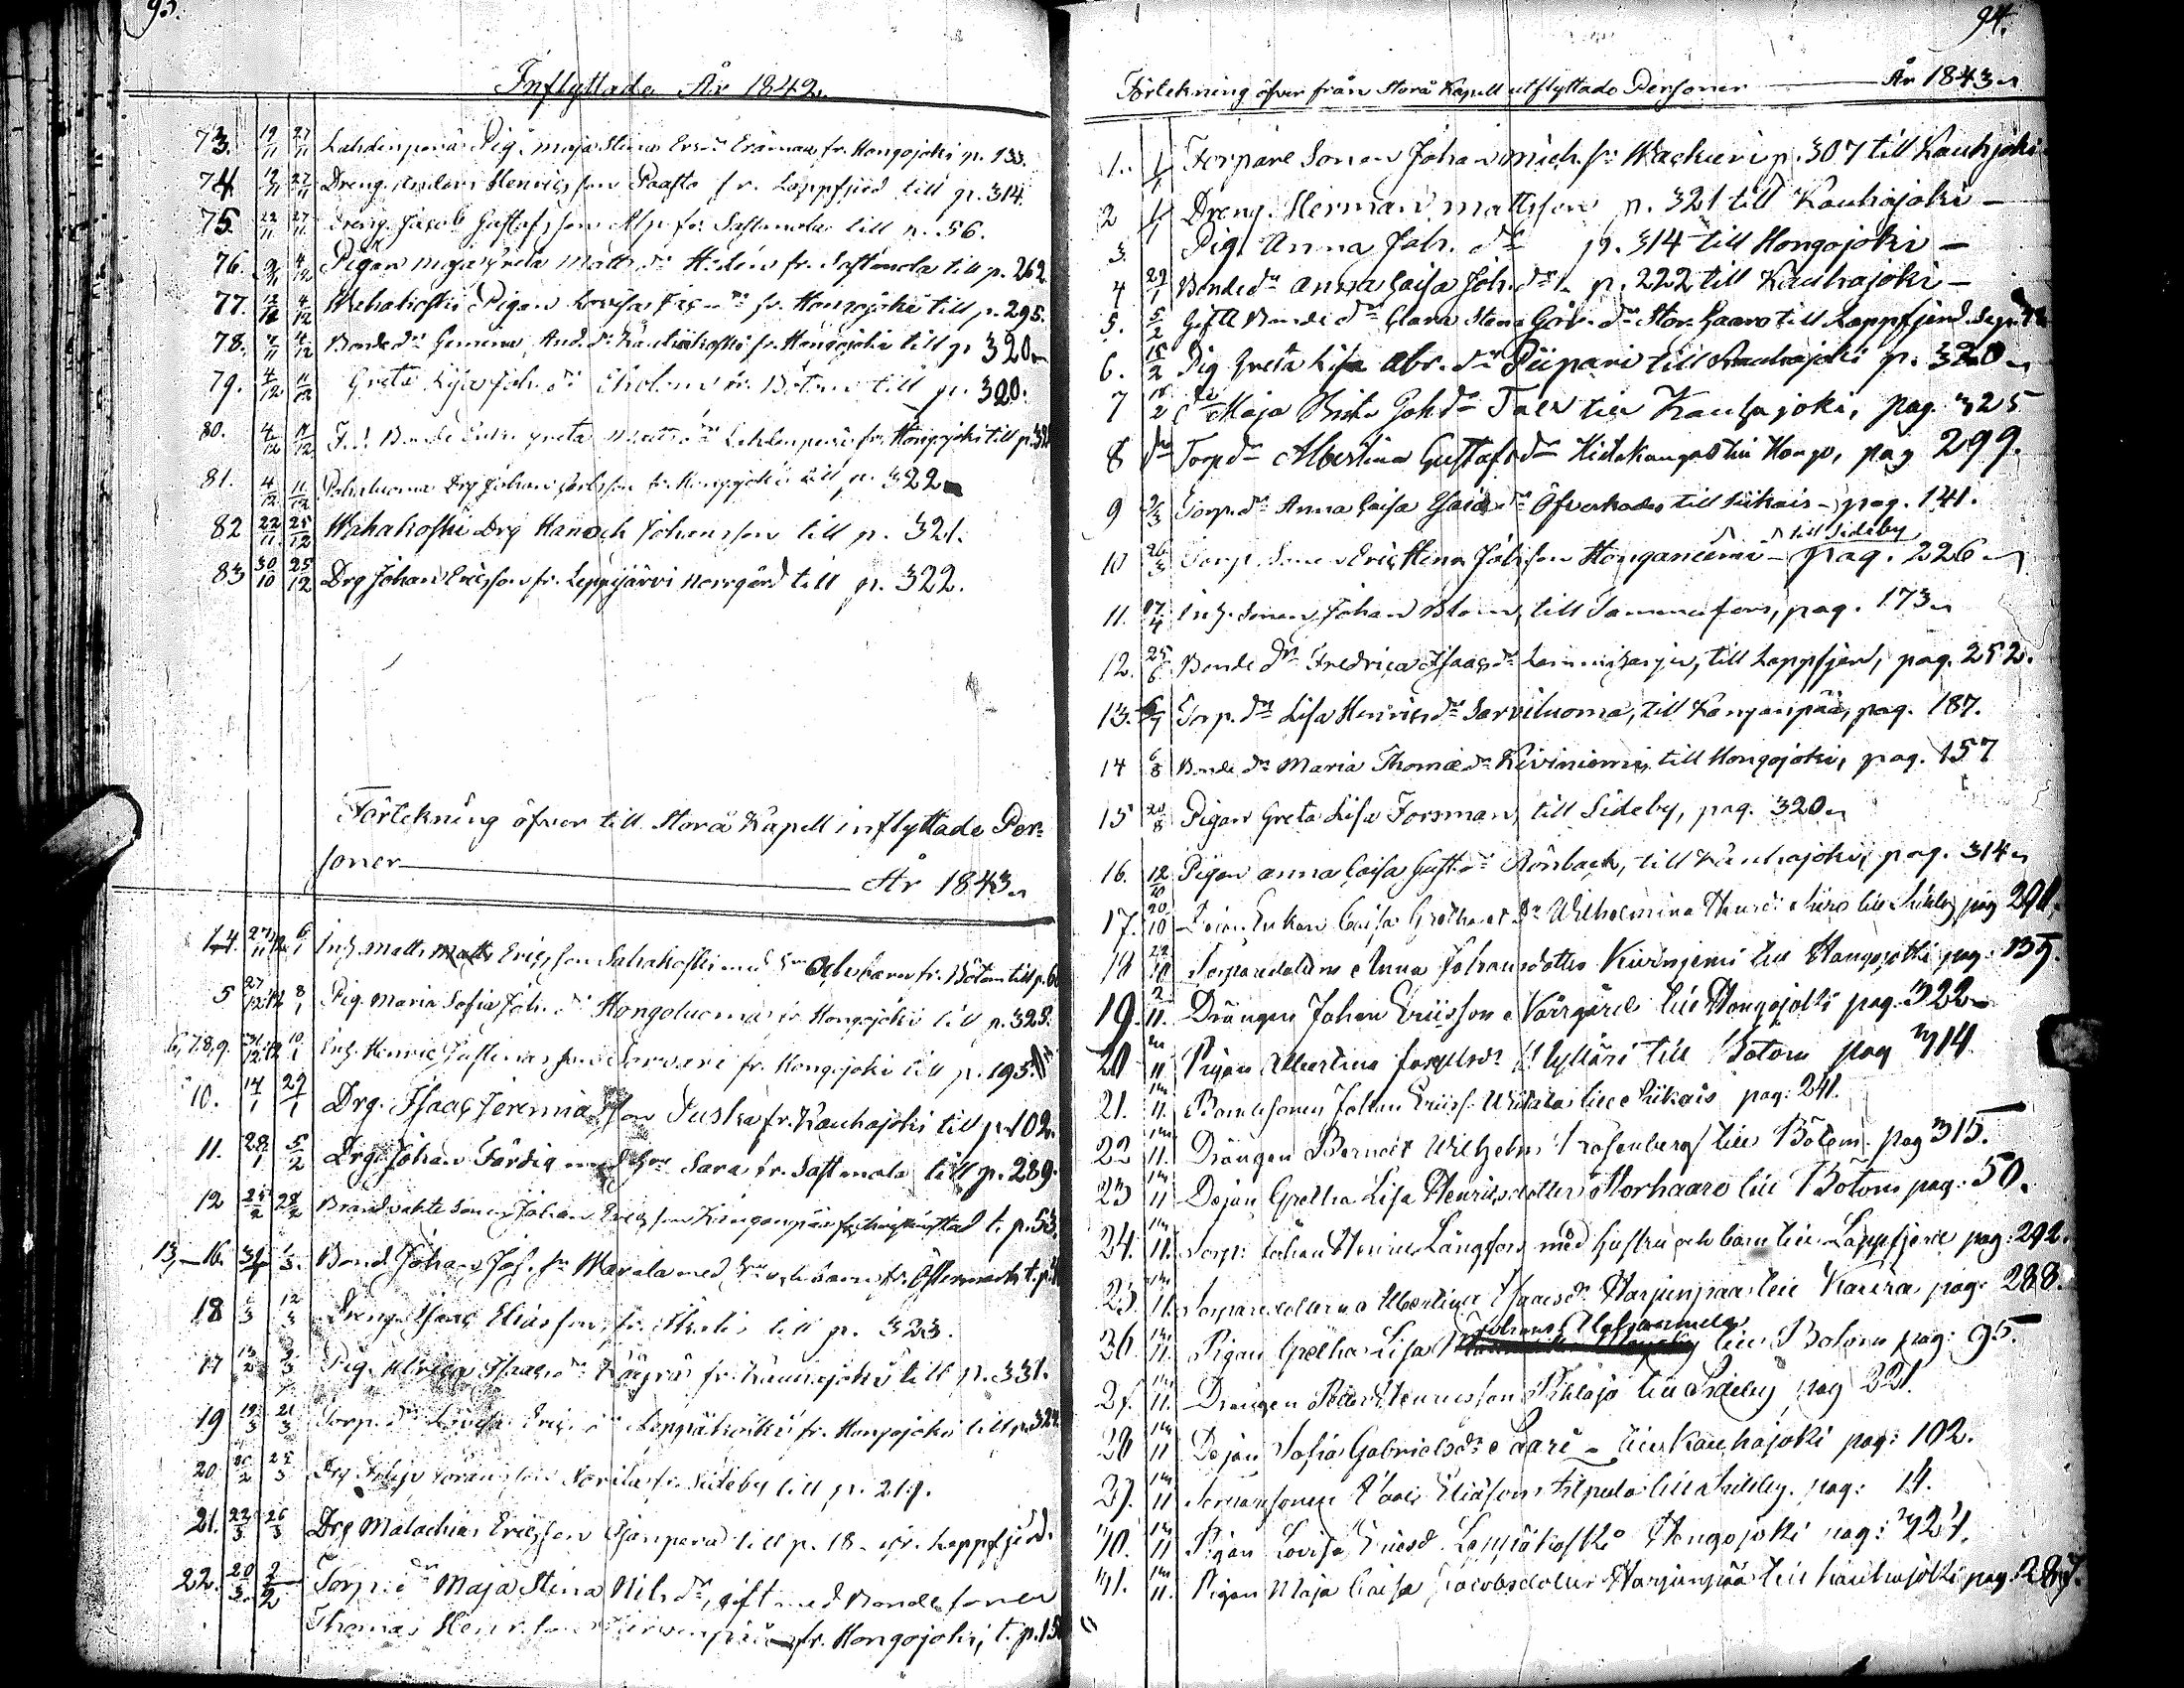 93.
Inflyttade År 1842.
73. 19/11 27/11 Lahdenperä Pig. Maja Stina Ers dr Eräman fr. Hongojoki p. 133.
74 12/11 27/11 Dreng. Anders Henricsson Paasto fr. Lappfjerd till p. 314.
75 22/11 27/11 Dreng. Jacob Gustafsson Alp fr. Sastmola till p. 56.
76. 4/12 Pigan Maja Greta Matts dr Hedén fr. Sastmola till p. 262
77. 4/12 Wahakoski Pigan Lovisa dr fr. Hongojoki till p. 295.
78. 4/12 Bonde dr And. dr fr. Hongojoki till p. 320
79. 4/12 11/12 Greta Lisa Joh. dr Ekholm fr. Bötom till p. 320.
80. 4/12 11/12 Bonde Enk. Greta Matts dr Lahdenperä fr. Hongojoki till p.
81. 4/12 11/12 Pahaluoma Drg Johan Carlsson fr. Hongojoki till p. 322
82 22/11 25/12 Wahakoski Drg Hanoch Johansson till p. 321.
83 30/10 25/12 Drg Johan Ericsson fr. Leppijärvi Norrgård till p. 322.
Förtekning öfver till Storå Kapell inflyttade Per-
soner År 1843
1-4. 27/11 42. 6/1 Inh. Matts Matts Ericsson Sahakoski med hru och barn fr. Bötom till p. 6
5 27/12 42 8/1 Pig. Maria Sofia Joh. dr Hongoluoma fr. Hongojoki till p. 328.
6,7,8,9. 31/12 42 10/1 Inh. Henric Gustavsson Sarvari fr. Hongojoki till p. 195.
10. 14/1 29/1 Drg. Isaac Jeremiasson Juska fr. Kauhajoki till p. 102.
11. 28/1 5/2 Drg. Johan Färdig med hru Sara fr. Sastmola till p. 289.
12 25/2 28/2 Brandvakts sonen Johan Ericsson Kangonpää fr. Christinestad t. p. 53.
13,-16. 1/3. Bond. Johan Joh. sn Mavala med hru och barn fr. Östermark t. p.
18 12/3 Dreng Isaac Eliasson, fr. till p. 323.
17 Pig. Ulrica Isaacs dr fr. Kauhajoki till p. 331.
19 19/3 21/3 Torp. dr Lovisa Erics dr Leppäkoski fr. Hongojoki till p. 324
20. Drg fr. Sideby till p. 217.
21. 22/3 26/3 Drg Malachias Ericsson Ojanperä till p. 18 fr. Lappfjerd.
22. 20/3. 2/2 Torp. dr Maja Stina Nils dr, gift med Bondesonen
Thomas Henr. son fr. Hongojoki, t. p. 15
94.
Förtekning öfver från Storå Kapell utflyttade Personer År 1843
1. 1/1 Torpare Sonen Johan Mich. sn Wackuri p. 307 till Kauhjoki
2 1/1 Dreng. Herman Mattsson p. 321 till Kauhajoki
3. Pig. Anna Joh. dr p. 314 till Hongojoki
4 29/1 Bonde dr Anna Caisa Joh. dr p. 222 till Kauhajoki
5. 5/2 Gifta Bonde dr Clara Stina Gör. dr Stor Haaro till Lappfjerd
6. 15/2 Pig Greta Lisa Abr. dr Piipari till Kauhajoki p. 320
7 18/2 dr Maja Brita Joh dr Talv till Kauhajoki, pag. 325
8 dr Torp dr Albertina Gustafs dr Hidekangas till Hongo, pag 299.
9 2/3 Torp. dr Anna Caisa Esaias dr Öfverkades till Siikais pag. 141.
10 26/3 Torp. Sonen Eric Henr. Joh. son Honganiemi till Sideby pag. 226
11. 17/4 Inh. Sonen Johan Blom, till Tammerfors, pag. 173
12. 25/6 Bonde dr Fredrica Isaacs dr Lammiharju, till Lappfjerd, pag. 252.
13. 6/7 Torp. dr Lisa Henrics dr Sarviluoma, till Kangonpää, pag. 187.
14 6/8 Bonde dr Maria Thomæ dr Kiviniemi, till Hongojoki, pag. 157
15 20/8 Pigan Greta Lisa Forsman, till Sideby, pag. 320
16. 12/10 Pigan Anna Caisa Gust. dr Rönback, till Kauhajoki, pag. 314
17. 20/10 Enkan Caisa Wilhelmina till Sideby pag 291.
18 22/10 Torparedottern Anna Johansdotter Kiviniemi till Hongojoki pag. 159.
19. 2/11. Drängen Johan Ericsson Norrgård till Hongojoki pag. 322
20 11 Pigan Albertina Josephs dr Mylläri till Bötom pag 314
21. 11. Bondesonen Johan Ericss. till Siikais pag: 241.
22 11. Drängen Berndt Wilhelm Rosenberg till Bötom pag 315.
23 11 Pigan Gretha Lisa Henricsdotter Storhaaro till Bötom pag: 50.
24. 11. Torp: Johan Henric Långfors med hustru och barn till Lappfjerd pag: 292.
25. 11. Torparedottern Albertina Isaacs dr Harjunpää till Karera pag: 288.
26. 11. Pigan Gretha Lisa Johans till Bötom pag: 95.
27. 11. Drängen Henricsson till Sideby pag 321.
28 11 Pigan Sofia Gabriels dr Saari till Kauhajoki pag: 102.
29. 11 Torparesonen Isaac Eliasson Filpula till Sideby. pag: 14.
30. 11 Pigan Lovisa Ericsd. Leppäkoski Hongojoki pag: 324.
31. 11. Pigan Maja Caisa Jacobsdotter Harjunpää till Kauhajoki pag. 287.